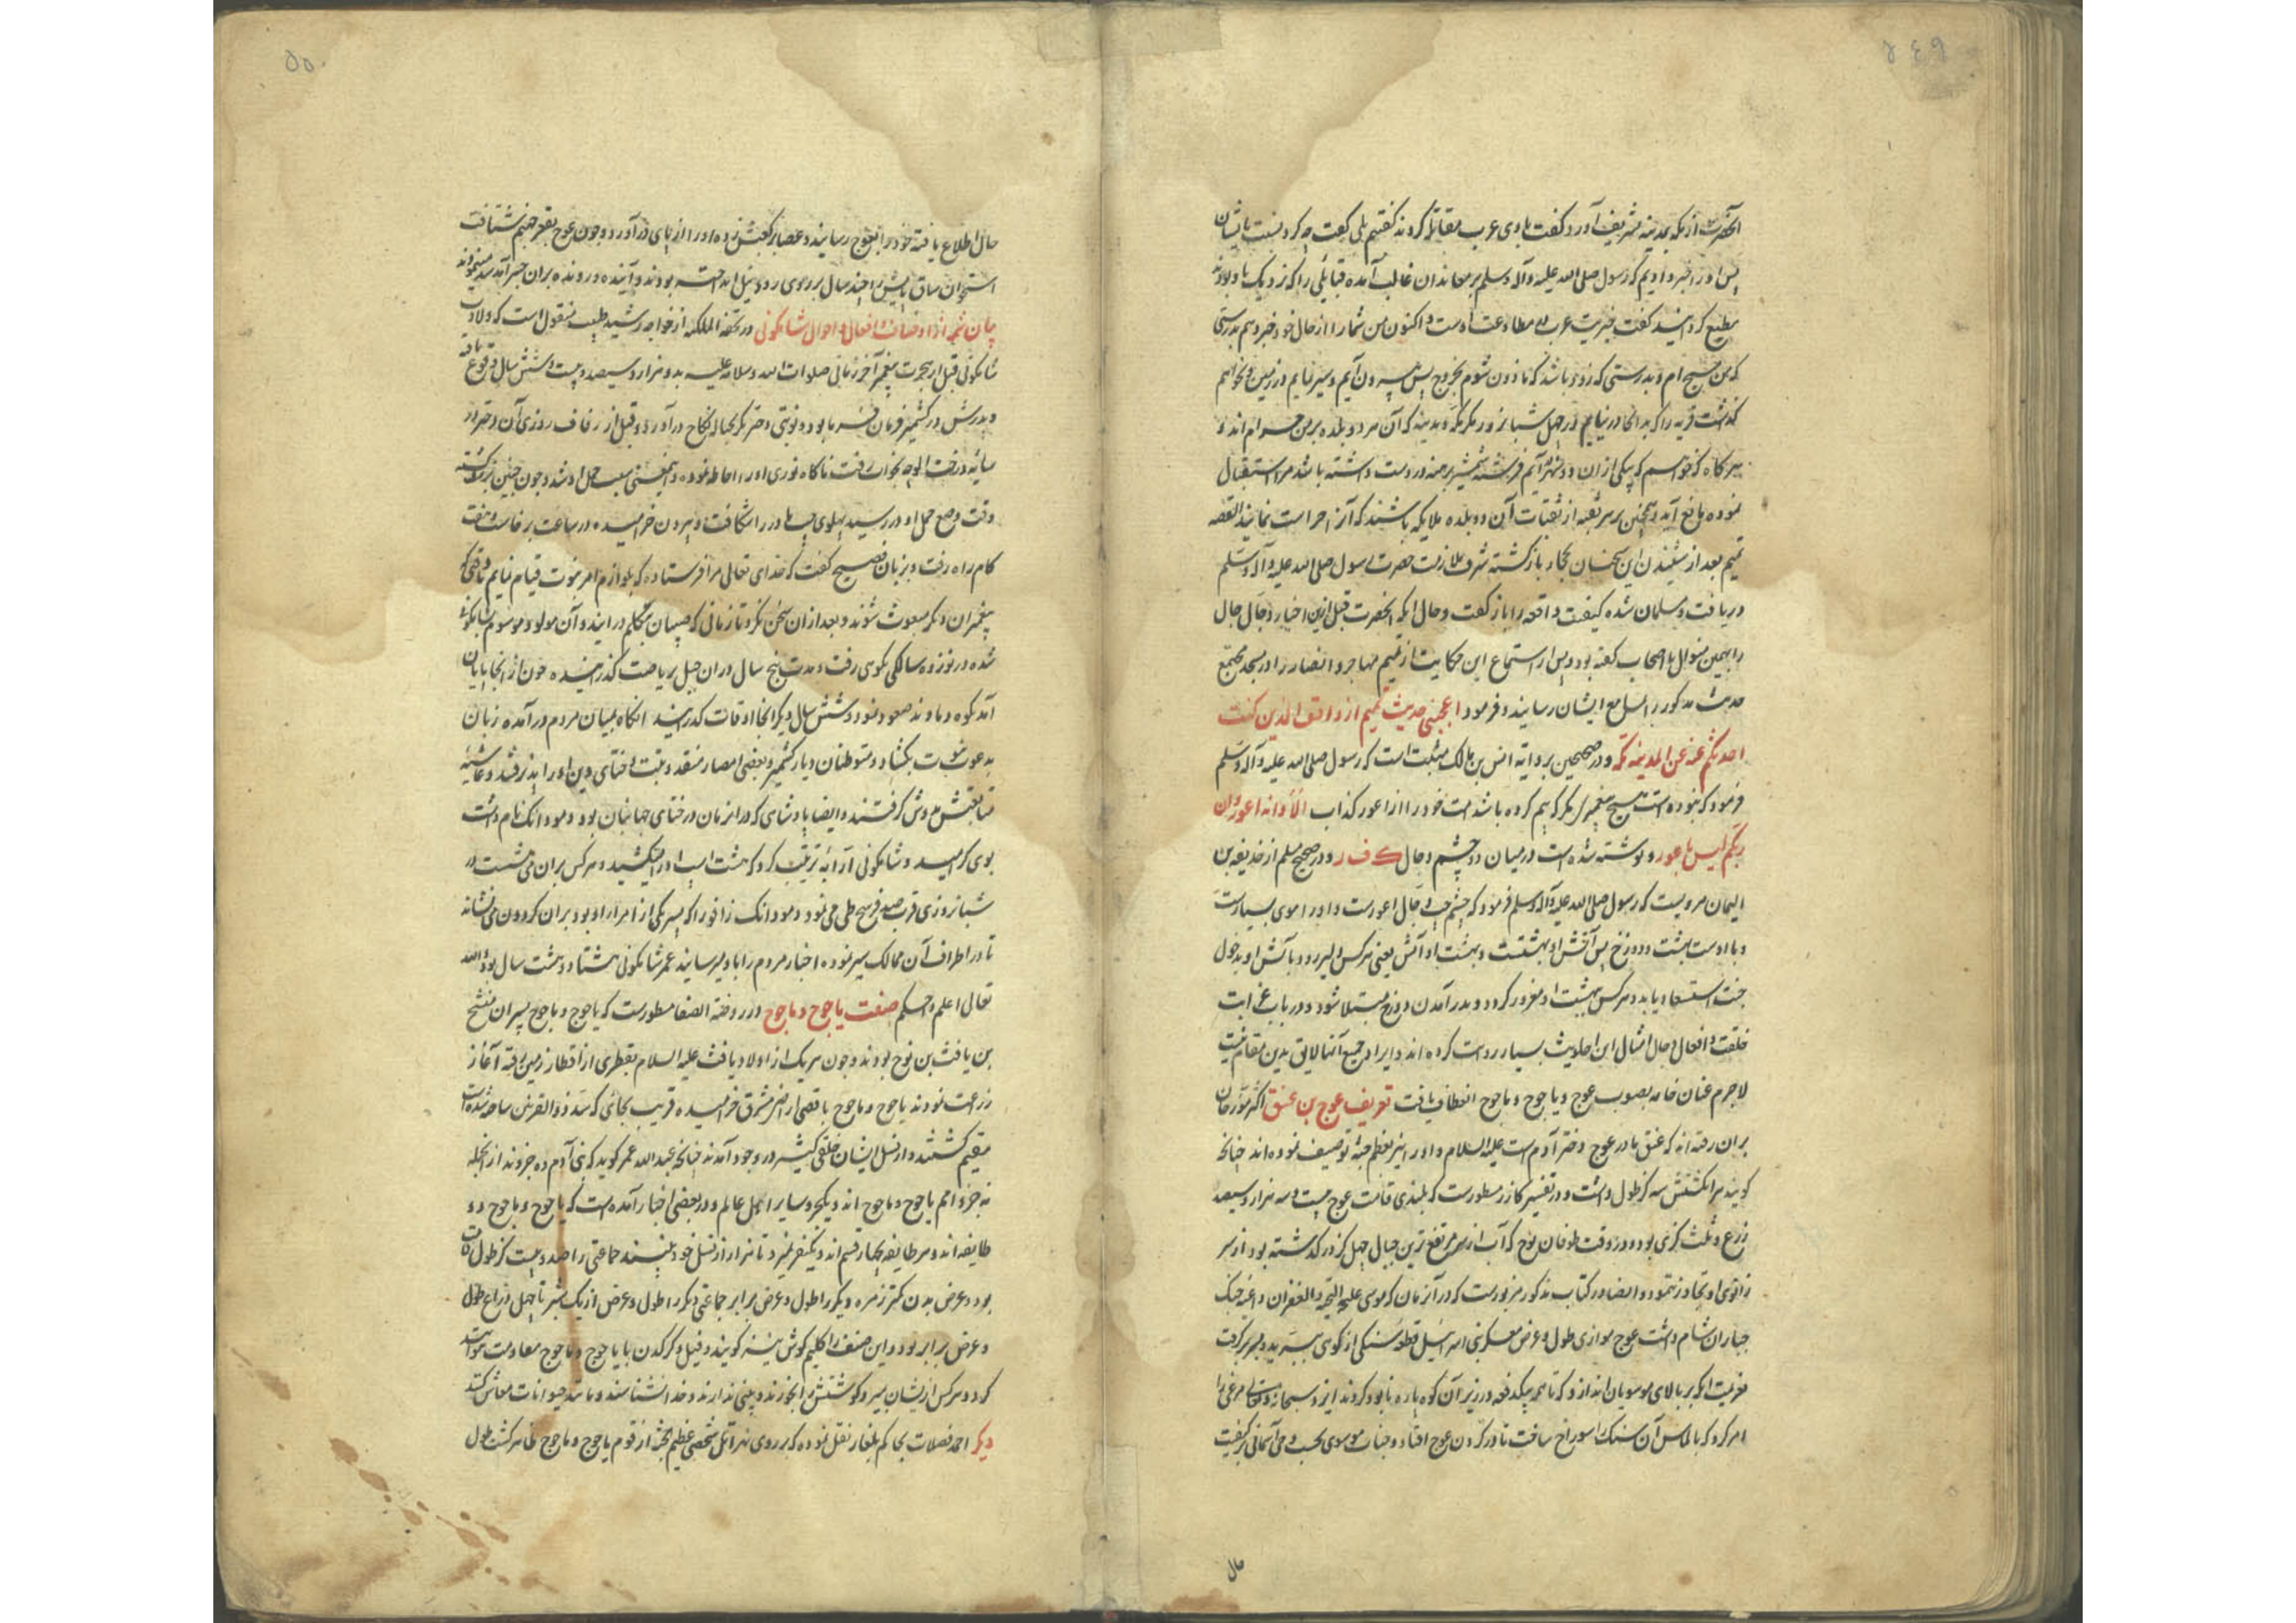 آنحضرت از مکه بمدینه تشریف آورد گفت با وی عرب مقاتله کردند گفتیم بلی گفت چه کرد نسبت بایشان
پس او را خبر دادیم که رسول صلی الله علیه وآله وسلم بر معاندان غالب آمده قبایلی را که نزدیک باو بودند
مطیع گردانید گفت خیریت عرب در مطاوعت اوست و اکنون من شما را از حال خود خبر دهم بدرستی
که من مسیح ام و بدرستی که زود باشد که ماذون شوم بخروج پس بیرون آیم و سیر نمایم در زمین و نخواهم
گذاشت قریه را که بدانجا در نیایم در چهل شبانروز مگر مکه و مدینه که آن هر دو بلده بر من حرام اند و
هرگاه که خواهم که بیکی از آن دو شهر در آیم فرشته شمشیر برهنه در دست داشته باشد مرا استقبال
نموده مانع آید و همچنین بر هر نقبه از نقبات آن دو بلده ملایکه باشند که آنرا حراست نمایند القصه
تمیم بعد از شنیدن این سخنان بجا باز گشته شرف ملازمت حضرت رسول صلی الله علیه وآله وسلم
دریافت و مسلمان شده کیفیت واقعه را باز گفت و حال آنکه آنحضرت قبل ازین اخبار دجال حال
را بهمین منوال با اصحاب گفته بود و پس از استماع این حکایت از تمیم مهاجر و انصار را در مسجد مجتمع
حدیث مذکور را بسامع ایشان رسانید و فرمود اعجبنی حدیث تمیم انه وافق الذی کنت
احدثکم عنه عن المدینه و مکه و در صحیحین بروایة انس بن مالک مثبت است که رسول صلی الله علیه وآله وسلم
فرمود که نبوده است هیچ پیغمبری مگر که بیم کرده باشد امت خود را از اعور کذاب الا وانه اعور وان
ربکم لیس باعور و نوشته شده است در میان دو چشم دجال ک ف ر و در صحیح مسلم از حذیفه بن
الیمان مرویست که رسول صلی الله علیه وآله وسلم فرمود که چشم چپ دجال اعورست و او را موی بسیارست
و با اوست بهشت و دوزخ پس آتش او بهشتست و بهشت او آتش یعنی هرکس دلیر رود بآتش او بدخول
جنت استسعاد یابد و هرکس ببهشت او مغرور گردد و بدر آمدن دوزخ مبتلا شود و در باب غرابت
خلقت و افعال دجال امثال این احادیث بسیار روایت کرده اند و ایراد جمیع آنها لایق بدین مقام نیست
لاجرم عنان خامه بصوب عوج و یاجوج و ماجوج انعطاف یافت تعریف عوج بن عنق اکثر مورخان
بران رفته اند که عنق مادر عوج دختر آدم است علیه السلام و او را نیز بعظم جثه توصیف نموده اند چنانچه
گویند هر انگشتش سه گز طول داشت و در تفسیر گازر مسطورست که بلندی قامت عوج بیست و سه هزار و سیصد
ذرع و ثلث گزی بود و در وقت طوفان نوح که آب از سر مرتفع ترین جبال چهل گز در گذشته بود از سر
زانوی او تجاوز ننمود و ایضا در کتاب مذکور مزبورست که در آن زمان که موسی علیه التحیة والغفران داعیه جنک
جباران شام داشت عوج موازی طول و عرض معسکر بنی اسرائیل قطعه سنگی از کوهی ببرید و بر سر گرفت
عزیمت آنکه بر بالای موسویان اندازد که تا همه بیکدفعه در زیر آن کوه پاره نابود گردند ایزد سبحانه و تعالی مرغی را
امر کرد که بالماس آن سنک را سوراخ ساخت تا در گردن عوج افتاد و جناب موسوی بحسب وحی آسمانی بر کیفیت
حال
حال اطلاع یافته خود را بعوج رسانید و عصا بر کعبش زده او را از پای در آورد و چون عوج بقعر جهنم شتافت
استخوان ساق پایش را چند سال بر روی رود نیل انداخته بودند و آینده و رونده بران جسر آمد شد مینمودند
بیان شمه از اوصاف و افعال و احوال شاکمونی در تحفة الملکیه از خواجه رشید طبیب منقول است که ولادت
شاکمونی قبل از هجرت پیغمبر آخر زمانی صلوات الله وسلامه علیه بدو هزار و سیصد و بیست و شش سال وقوع یافته
و پدرش در کشمیر فرمان فرما بود و نوبتی دختر بکر بحباله نکاح در آورد و قبل از زفاف روزی آن دختر در
سایه درخت الوچه بخواب رفت ناگاه نوری او را احاطه نموده و همین معنی سبب حمل او شد و چون جنین بزرگ گشته
وقت وضع حمل او در رسید پهلوی چپ مادر را شکافت و بیرون خرامیده در ساعت برخاست و هفت
کام راه رفت و بزبان فصیح گفت که خدای تعالی مرا فرستاده که بلوازم امر نبوت قیام نمایم تا وقتی که
پیغمبران دیگر مبعوث شوند و بعد از آن سخن نکرد تا زمانی که صبیان متکلم در آیند و آن مولود موسوم بشاکمونی
شده در نوزده سالگی بکوهی رفت و مدت پنج سال در آن جبل بریاضت گذرانیده چون از آنجا بپایان
آمد بکوه دماوند صعود نمود و شش سال دیگر آنجا اوقات گذرانید آنگاه بمیان مردم در آمده زبان
بدعوت نبوت بگشاد و متوطنان دیار کشمیر و بعضی امصار هند و تبت و ختای دین او را پذیرفتند و غاشیه
متابعتش بر دوش گرفتند و ایضا پادشاهی که در آن زمان در ختای جهانبان بود و مودانک نام داشت
بوی گروید و شاکمونی ارابه ترتیب کرد که هشت اسب او را میکشید و هرکس بران می نشست در
شبانروزی قرب صد فرسخ طی می نمود و مودانک زافو را که پسر یکی از امراء او بود بران گردون می نشاند
تا در اطراف آن ممالک سیر نموده اخبار مردم را باو میرسانید عمر شاکمونی هشتاد و هشت سال بود والله
تعالی اعلم واحکم صفت یاجوج و ماجوج در روضة الصفا مسطورست که یاجوج و ماجوج پسران منسج
بن یافث بن نوح بودند و چون هریک از اولاد یافث علیه السلام بقطری از اقطار زمین رفته آغاز
زراعت نمودند یاجوج و ماجوج باقصی ارض مشرق خرامیده قریب بجائی که سد ذو القرنین ساخته شده است
مقیم گشتند و از نسل ایشان خلقی کثیر در وجود آمدند چنانچه عبد الله عمر گوید که بنی آدم ده جزوند از آنجمله
نه جزو امم یاجوج و ماجوج اند و یکجزو سایر اهل عالم و در بعضی اخبار آمده است که یاجوج و ماجوج دو
طایفه اند و هر طایفه چهار قسم اند و یک نفر نمیرد تا هزار از نسل خود نبیند جماعتی را صد و بیست گز طول قامت
بود و عرض بدن کمتر زمره دیگر را طول و عرض برابر جماعتی دیگر را طول و عرض از یک شبر تا چهل ذراع طول
و عرض برابر بود و این صنف را گلیم گوش نیز گویند و فیل و کرکدن با یاجوج و ماجوج مقاومت نتواند
کرد و هرکس از ایشان بمیرد گوشتش را بخورند و دینی ندارند و خدا نشناسند و مانند حیوانات معاش کنند
دیگر احمد فضلان بحاکم بلغار نقل نموده که بر روی نهر اتل شخصی عظیم جثه از قوم یاجوج و ماجوج ظاهر گشت طول